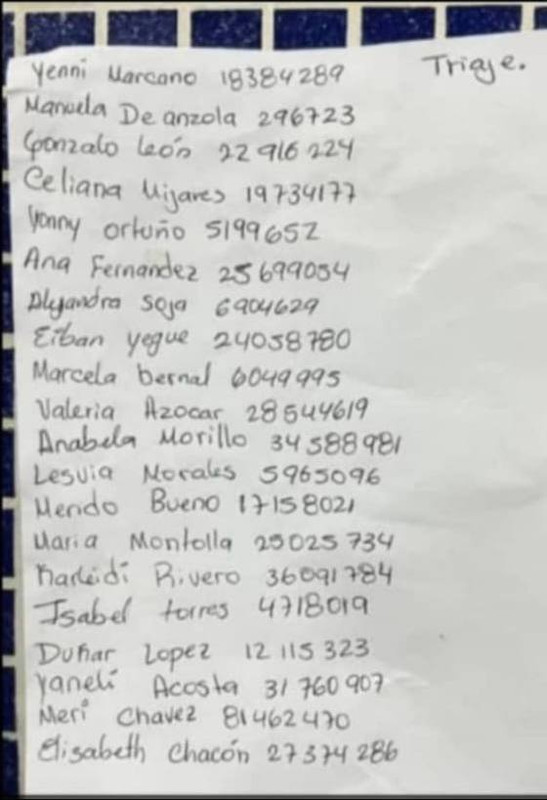 Triaje.
Yenni Marcano 18384289
Manuela De anzola 296723
Gonzalo león 22 916 224
Celiana Mijares 19734177
Yonny ortuño 5199652
Ana Fernandez 25699054
Alejandra Soja 6904629
Eiban yegue 24058780
Marcela bernal 6049995
Valeria Azocar 28544619
Anabela Morillo 34588981
Lesvia Morales 5965096
Merido Bueno 17158021
Maria Montolla 25025734
Karleidi Rivero 36091784
Isabel torres 4718019
Duñar Lopez 12 115 323
Yaneli Acosta 31 760 907
Meri Chavez 81462470
Elisabeth Chacón 27374286